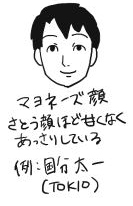 マヨネーズ顔
さとう顔ほど甘くなく
あっさりしている
例:国分太一
(TOKIO)